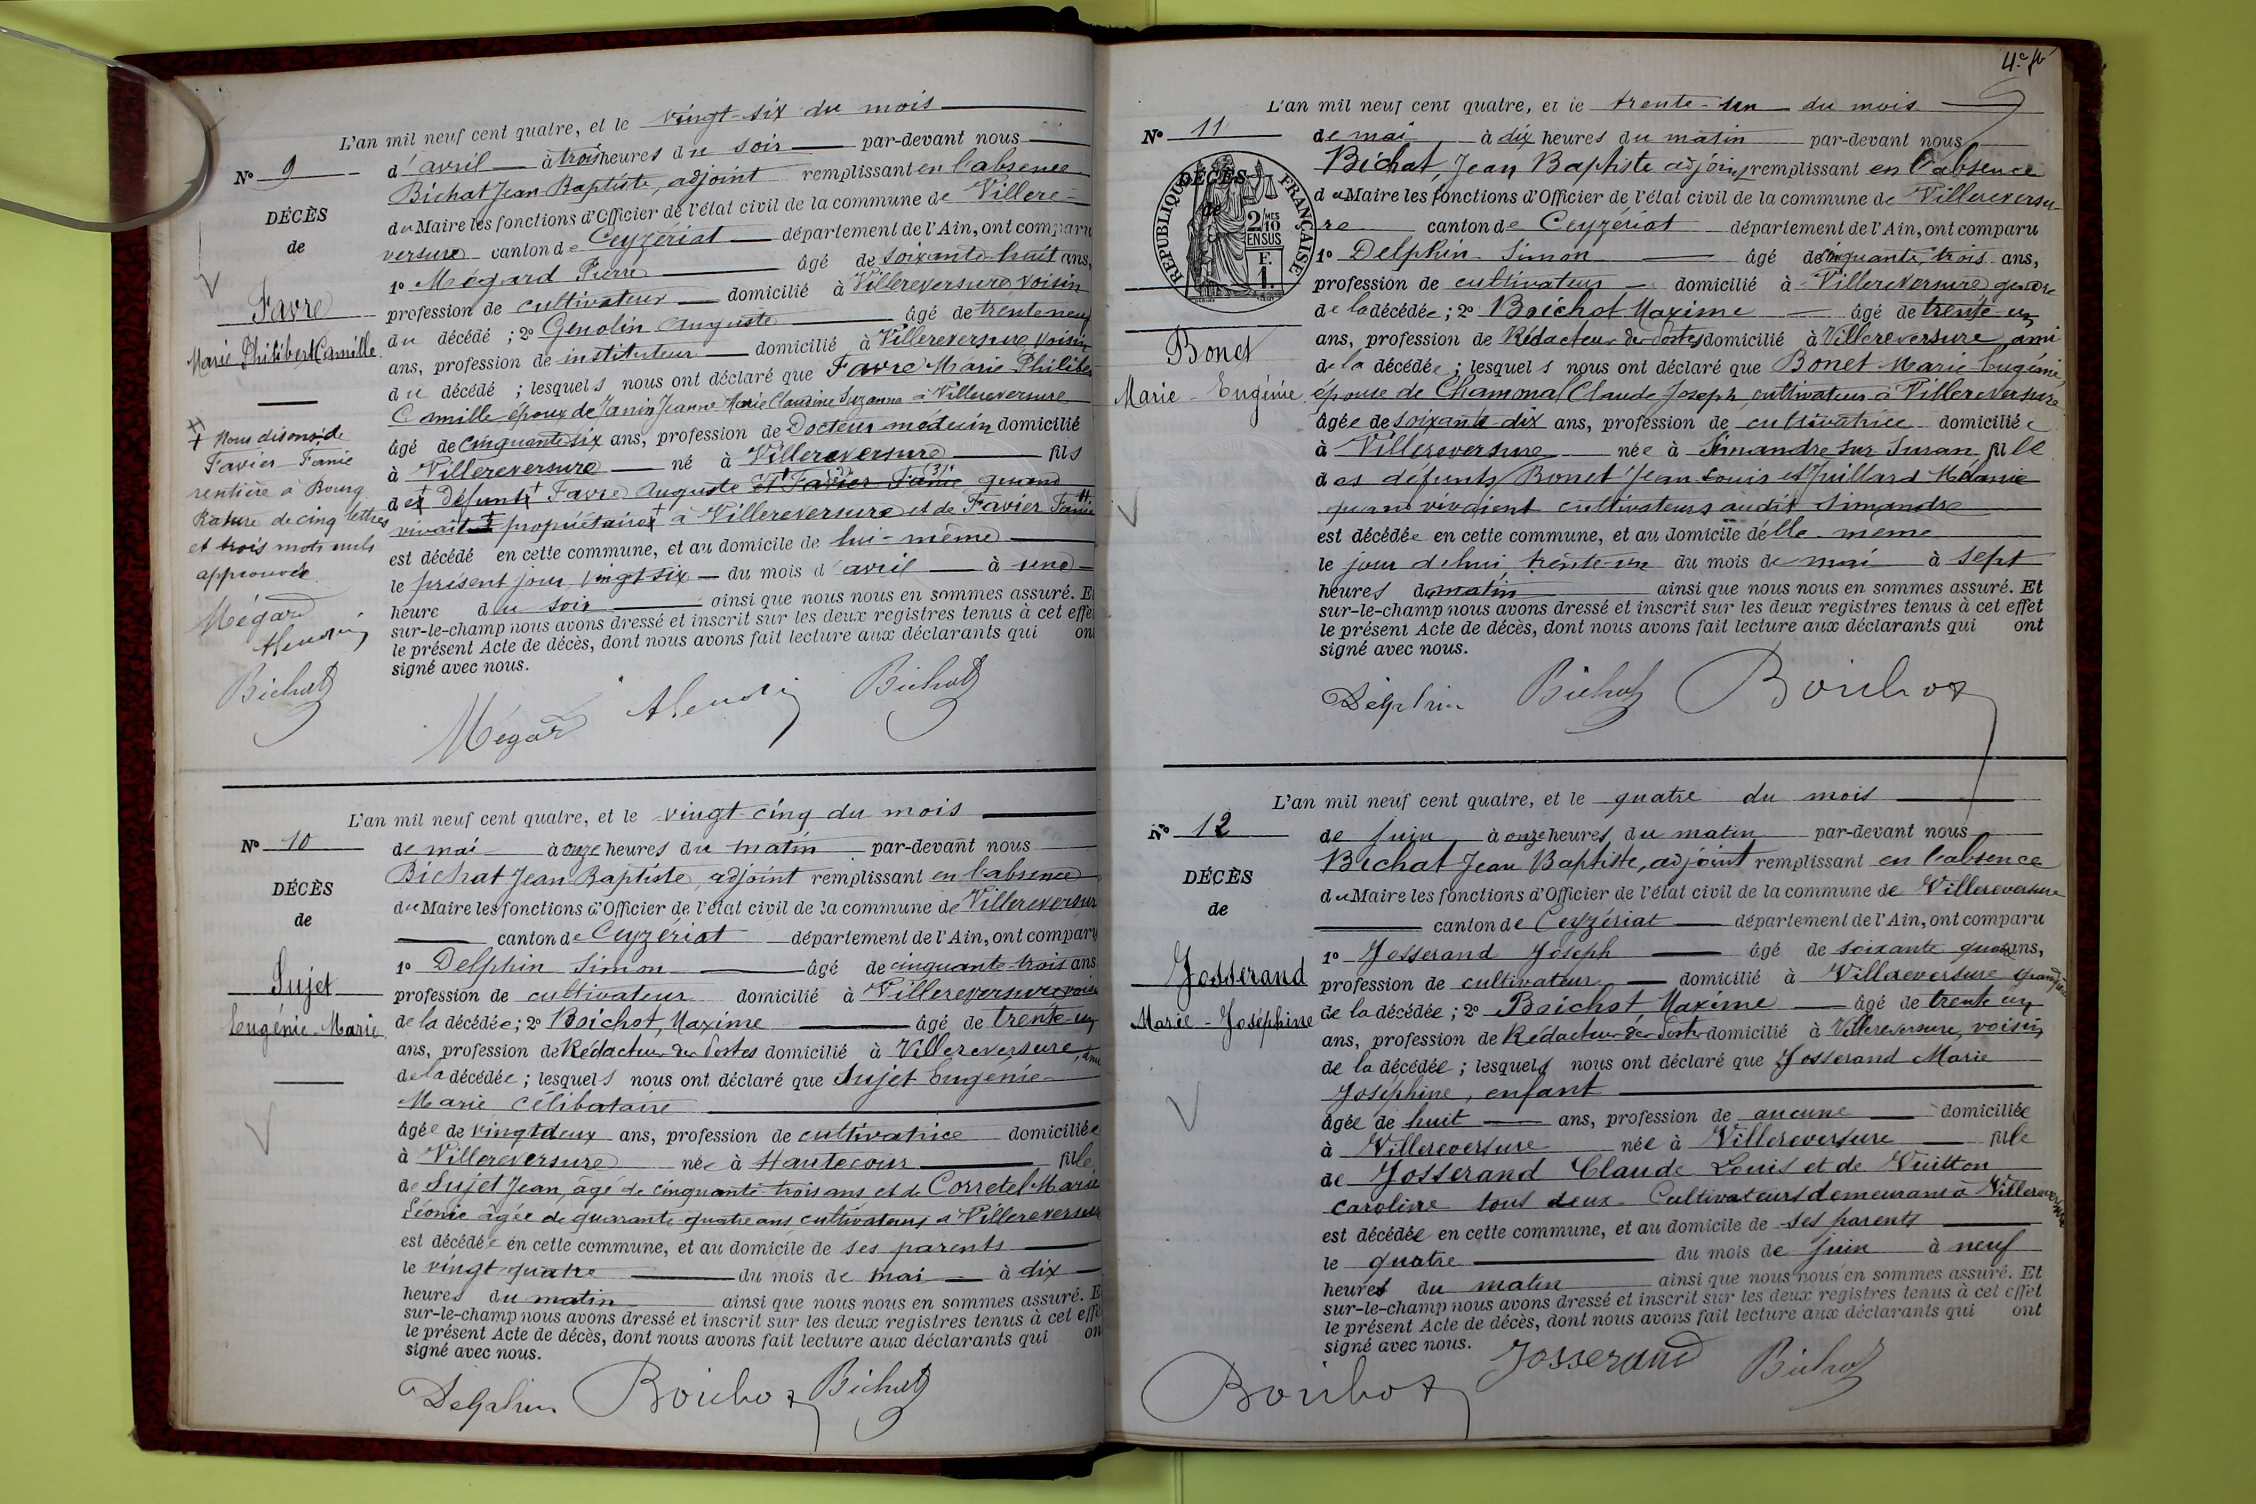 L'an mil neuf cent quatre, et le vingt-six du mois
N° 9
d'avril à trois heures du soir par-devant nous
Bichat Jean Baptiste, adjoint remplissant en l'absence
DÉCÈS
du Maire les fonctions d'Officier de l'état civil de la commune de Villere-
de
versure canton de Ceyzériat département de l'Ain, ont comparu
1° Mégard Pierre âgé de soixante-huit ans,
Favre
profession de cultivateur domicilié à Villereversure voisin
Marie Philibert Camille
du décédé ; 2° Auguste âgé de trente neuf
ans, profession de instituteur domicilié à Villereversure voisin
du décédé ; lesquels nous ont déclaré que Favre Marie Philibe
Camille époux de Janin Jeanne Marie Claudine Suzanne à Villereversure
âgé de cinquante six ans, profession de Docteur médecin domicilié
à Villereversure né à Villereversure fils
des Défunts Favre Auguste et Favier Fanie quand
vivait propriétaire à Villereversure et de Favier Fanie
Nous disons: de
Favier Fanie
rentière à Bourg
Rature de cinq lettres
et trois mots nuls
approuvée
Mégard
Bichat
est décédé en cette commune, et au domicile de lui-même
le présent jour vingt six du mois d'avril à une
heure du soir ainsi que nous nous en sommes assuré. E
sur-le-champ nous avons dressé et inscrit sur les deux registres tenus à cet effe
le présent Acte de décès, dont nous avons fait lecture aux déclarants qui on
signé avec nous.
Mégard Bichat
L'an mil neuf cent quatre, et le vingt cinq du mois
N° 10
de mai à onze heures du matin par-devant nous
Bichat Jean Baptiste, adjoint remplissant en l'absence
DÉCÈS
du Maire les fonctions d'Officier de l'état civil de la commune de Villereversur
de
canton de Ceyzériat département de l'Ain, ont comparu
1° Delphin Simon âgé de cinquante-trois ans
Sujet
profession de cultivateur domicilié à Villereversure voisin
Eugénie-Marie
de la décédée ; 2° Boichot, Maxime âgé de trente-un
ans, profession de Rédacteur des Postes domicilié à Villereversure, ami
de la décédée ; lesquels nous ont déclaré que Sujet Eugénie
Marie célibataire
âgée de vingt deux ans, profession de cultivatrice domiciliée
à Villereversure née à Hautecour fille
de Sujet Jean, âgé de cinquante-trois ans et de Corretel Marie
Léonie âgée de quarante quatre ans cultivateurs à Villereversure
est décédée en cette commune, et au domicile de ses parents
le vingt-quatre du mois de mai à dix
heures du matin ainsi que nous nous en sommes assuré. E
sur-le-champ nous avons dressé et inscrit sur les deux registres tenus à cet effe
le présent Acte de décès, dont nous avons fait lecture aux déclarants qui on
signé avec nous.
Delphin Boichot Bichat
4e
L'an mil neuf cent quatre, et le trente-un du mois
N° 11
de mai à dix heures du matin par-devant nous
Bichat, Jean Baptiste adjoint remplissant en l'absence
DÉCÈS
de
RÉPUBLIQUE FRANÇAISE
2/10mes
EN SUS
F.
1.
du Maire les fonctions d'Officier de l'état civil de la commune de Villereversu-
re canton de Ceyzériat département de l'Ain, ont comparu
1° Delphin Simon âgé de cinquante, trois ans,
profession de cultivateur domicilié à Villereversure gendre
de la décédée ; 2° Boichot Maxime âgé de trente-un
Bonet
ans, profession de Rédacteur des Postes domicilié à Villereversure, ami
de la décédée ; lesquels nous ont déclaré que Bonet Marie Eugénie,
Marie-Eugénie
épouse de Chamonal Claude Joseph, cultivateur à Villereversure
âgée de soixante-dix ans, profession de cultivatrice domiciliée
à Villereversure née à Simandre sur Suran fille
des défunts Bonet Jean Louis et Juillard Mélanie
quand vivaient cultivateurs audit Simandre
est décédée en cette commune, et au domicile d'elle-même
le jour d'hui trente-un du mois de mai à sept
heures du matin ainsi que nous nous en sommes assuré. Et
sur-le-champ nous avons dressé et inscrit sur les deux registres tenus à cet effet
le présent Acte de décès, dont nous avons fait lecture aux déclarants qui ont
signé avec nous.
Delphin Bichat Boichot
L'an mil neuf cent quatre, et le quatre du mois
N° 12
de juin à onze heures du matin par-devant nous
Bichat Jean Baptiste, adjoint remplissant en l'absence
DÉCÈS
du Maire les fonctions d'Officier de l'état civil de la commune de Villereversure
de
canton de Ceyzériat département de l'Ain, ont comparu
1° Josserand Joseph âgé de soixante quatre ans,
Josserand
profession de cultivateur domicilié à Villereversure grand père
Marie-Joséphine
de la décédée ; 2° Boichot Maxime âgé de trente un
ans, profession de Rédacteur des Postes domicilié à Villereversure, voisin
de la décédée ; lesquels nous ont déclaré que Josserand Marie
Joséphine, enfant
âgée de huit ans, profession de aucune domiciliée
à Villereversure née à Villereversure fille
de Josserand Claude Louis et de Vuitton
Caroline tous deux Cultivateurs demeurant à Villereversure
est décédée en cette commune, et au domicile de ses parents
le quatre du mois de juin à neuf
heures du matin ainsi que nous nous en sommes assuré. Et
sur-le-champ nous avons dressé et inscrit sur les deux registres tenus à cet effet
le présent Acte de décès, dont nous avons fait lecture aux déclarants qui ont
signé avec nous.
Boichot Josserand Bichat